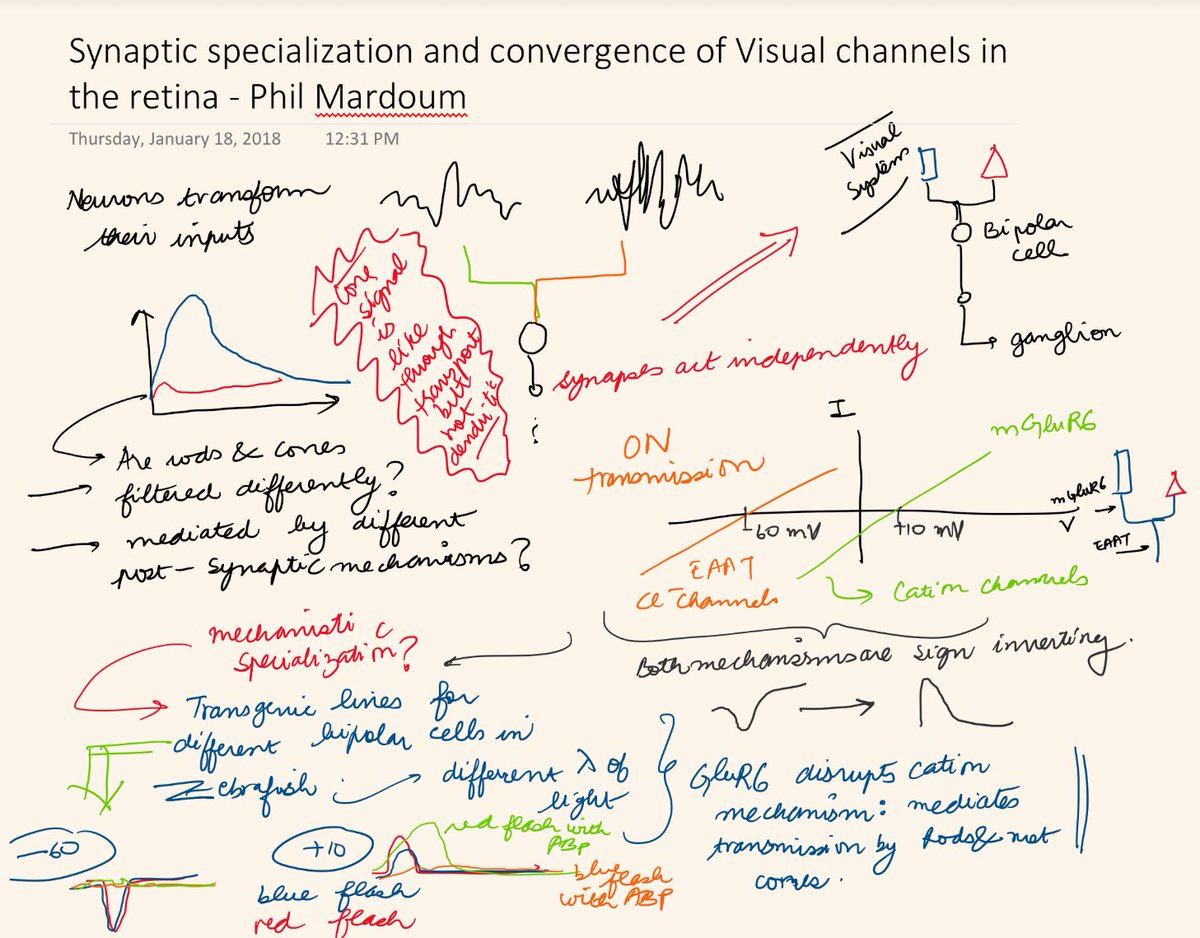 Synaptic specialization and convergence of Visual channels in
the retina - Phil Mardoum
Thursday, January 18, 2018 12:31 PM
Neurons transform
their inputs
Visual
System
Bipolar
cell
ganglion
Cone
signal
is
like
through
transport
but
not
dendritic
?
synapses act independently
Are rods & cones
filtered differently?
mediated by different
post-synaptic mechanisms?
ON
transmission
I
mGluR6
-60 mV
+10 mV
V
mGluR6
EAAT
EAAT
Cl- channels
Cation channels
Both mechanisms are sign inverting.
mechanistic
specialization?
Transgenic lines for
different bipolar cells in
Zebrafish
different λ of
light
GluR6 disrupts cation
mechanism: mediates
transmission by Rods & not
cones.
-60
+10
red flash with
blue flash
red flash
blue flash
with